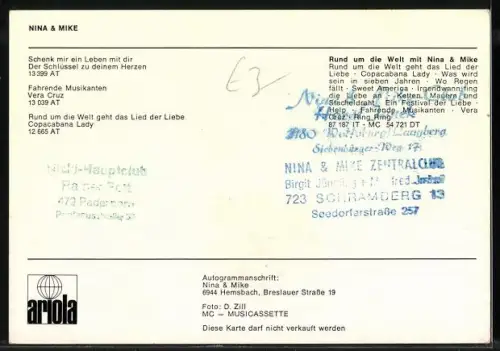 NINA & MIKE
Schenk mir ein Leben mit dir
Der Schlüssel zu deinem Herzen
13 399 AT
Fahrende Musikanten
Vera Cruz
13 039 AT
Rund um die Welt geht das Lied der Liebe
Copacabana Lady
12 665 AT
E3
Rund um die Welt mit Nina & Mike
Rund um die Welt geht das Lied der
Liebe · Copacabana Lady · Was wird
sein in sieben Jahren · Wo Regen
fällt · Sweet America · Irgendwann
die Liebe an · Ketten, Mauern und
Stacheldraht · Ein Festival der Liebe ·
Help · Fahrende Musikanten · Vera
Cruz · Ring Ring
87 187 IT · MC 54 721 DT
Nina
3180 Wolfsburg
Siebenbürger-Weg 17
NINA & MIKE ZENTRALCLUB
Birgit
723 SCHRAMBERG 13
Seedorferstraße 257
Hauptclub
Autogrammanschrift:
Nina & Mike
6944 Hemsbach, Breslauer Straße 19
Foto: D. Zill
MC = MUSICASSETTE
Diese Karte darf nicht verkauft werden
ariola